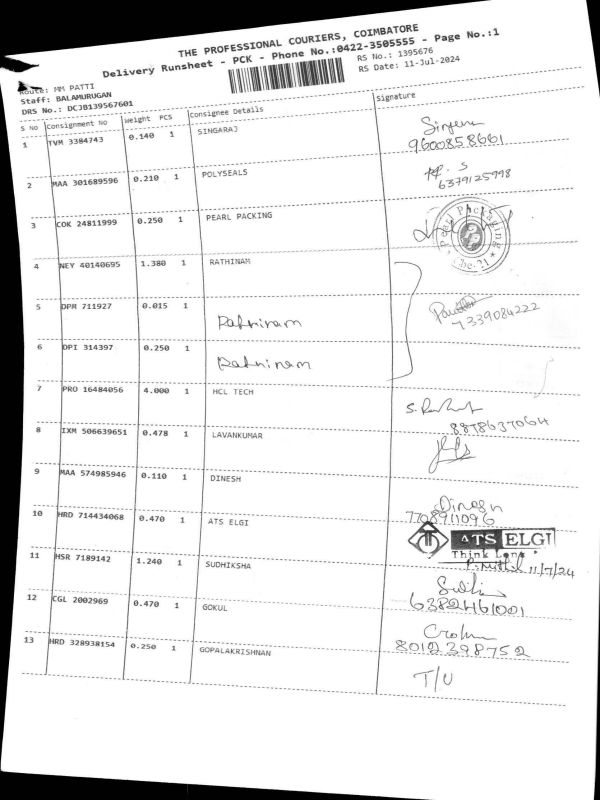 THE PROFESSIONAL COURIERS, COIMBATORE
Delivery Runsheet - PCK - Phone No.:0422-3505555 - Page No.:1
Route: MM PATTI
RS No.: 1395676
Staff: BALAMURUGAN
RS Date: 11-Jul-2024
DRS No.: DCJB139567601
S No Consignment No Weight PCS Consignee Details Signature
1 TVM 3384743 0.140 1 SINGARAJ
9600858661
2 MAA 301689596 0.210 1 POLYSEALS
6379125998
3 COK 24811999 0.250 1 PEARL PACKING
Pearl Packaging
Cbe-21
4 NEY 40140695 1.380 1 RATHINAM
5 DPR 711927 0.015 1
Rathinam
7339084222
6 DPI 314397 0.250 1
Rathinam
7 PRO 16484056 4.000 1 HCL TECH
8878637064
8 IXM 506639651 0.478 1 LAVANKUMAR
9 MAA 574985946 0.110 1 DINESH
Dinesh
7708911096
10 HRD 714434068 0.470 1 ATS ELGI
ATS ELGI
Think Long
11/7/24
11 HSR 7189142 1.240 1 SUDHIKSHA
6382461001
12 CGL 2002969 0.470 1 GOKUL
8012398752
13 HRD 328938154 0.250 1 GOPALAKRISHNAN
T/U